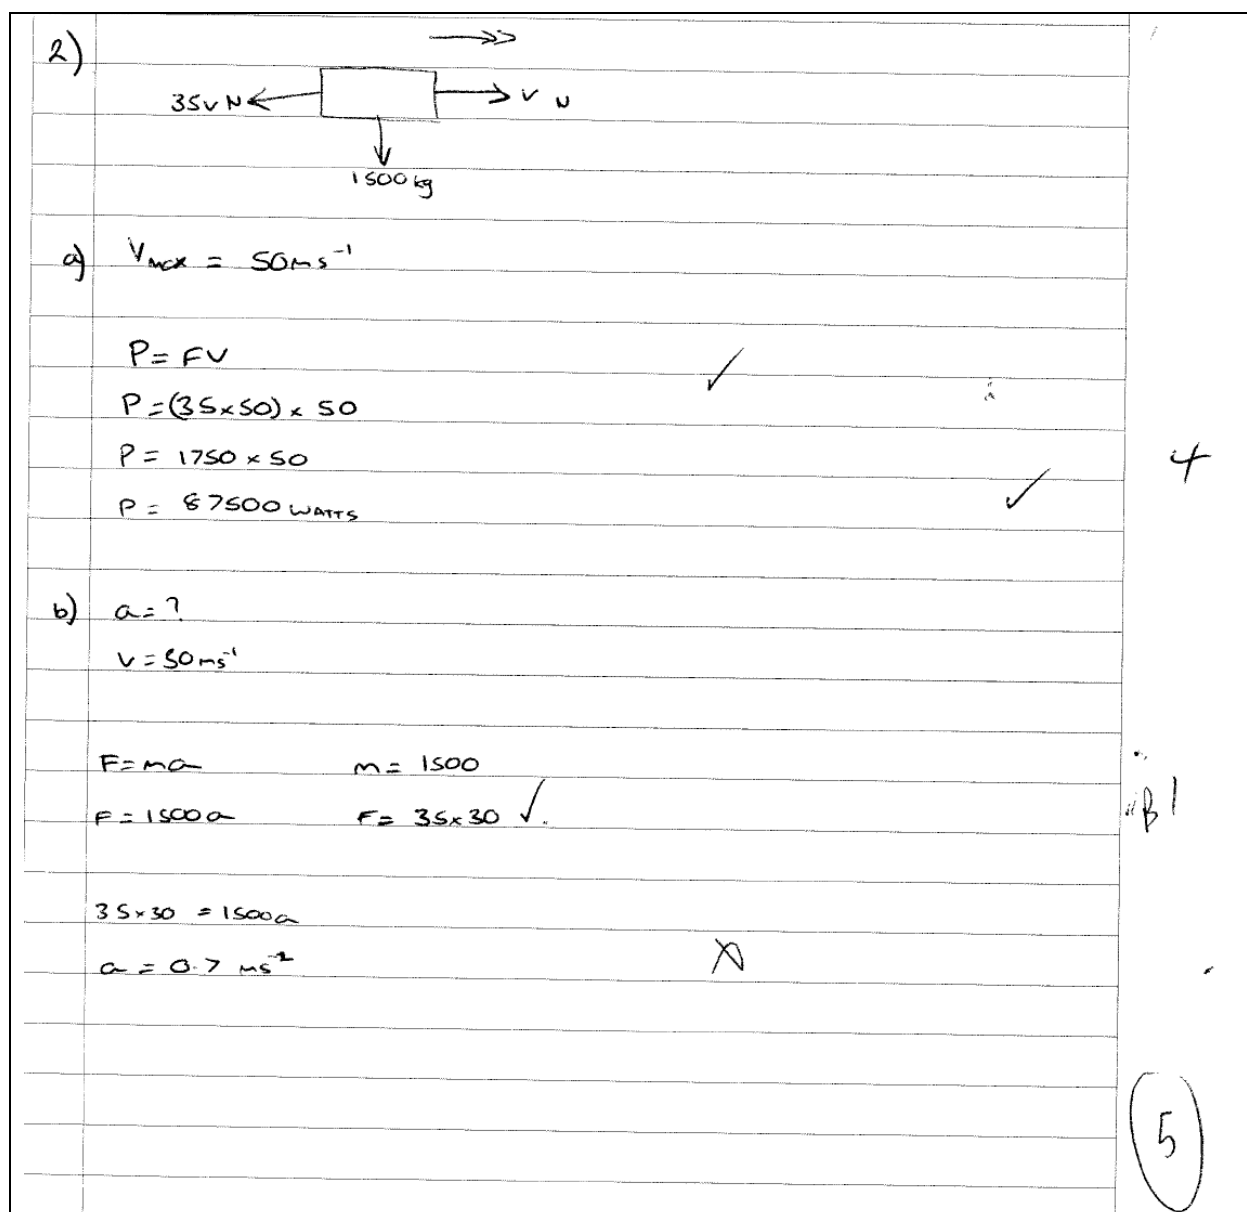 2)
35v N v N
1500kg
a) Vmax = 50ms⁻¹
P = FV ✓
P = (35×50) × 50
P = 1750 × 50 4
P = 87500 WATTS ✓
b) a = ?
V = 30ms⁻¹
F = ma m = 1500
F = 1500a F = 35×30 ✓ B1
35×30 = 1500a
a = 0.7 ms⁻²
5